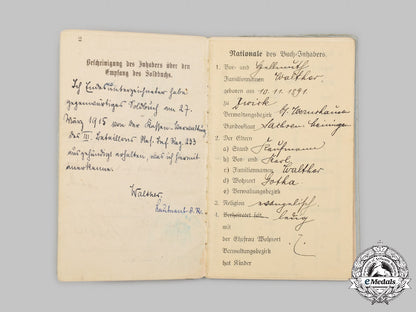 2
Bescheinigung des Inhabers über den
Empfang des Soldbuchs.
Ich Endesunterzeichneter habe
gegenwärtiges Soldbuch am 27.
März 1915 von der Kassen-Verwaltung
des III. Bataillons Res. Inf. Reg. 233
ausgehändigt erhalten, was ich hiermit
anerkenne.
Walther,
Leutnant d. R.
Nationale des Buch-Inhabers.
1. Vor- und Hellmuth
Familiennamen Walther
geboren am 10. 11. 1891
zu
Verwaltungsbezirk
Bundesstaat Sachsen-Meiningen
2. Der Eltern
a) Stand Kaufmann
b) Vor- und Karl
c) Familiennamen Walther
d) Wohnort Gotha
e) Verwaltungsbezirk
3. Religion evangelisch
4. Verheiratet seit ledig
mit
der Ehefrau Wohnort
Verwaltungsbezirk
hat Kinder
eMedals